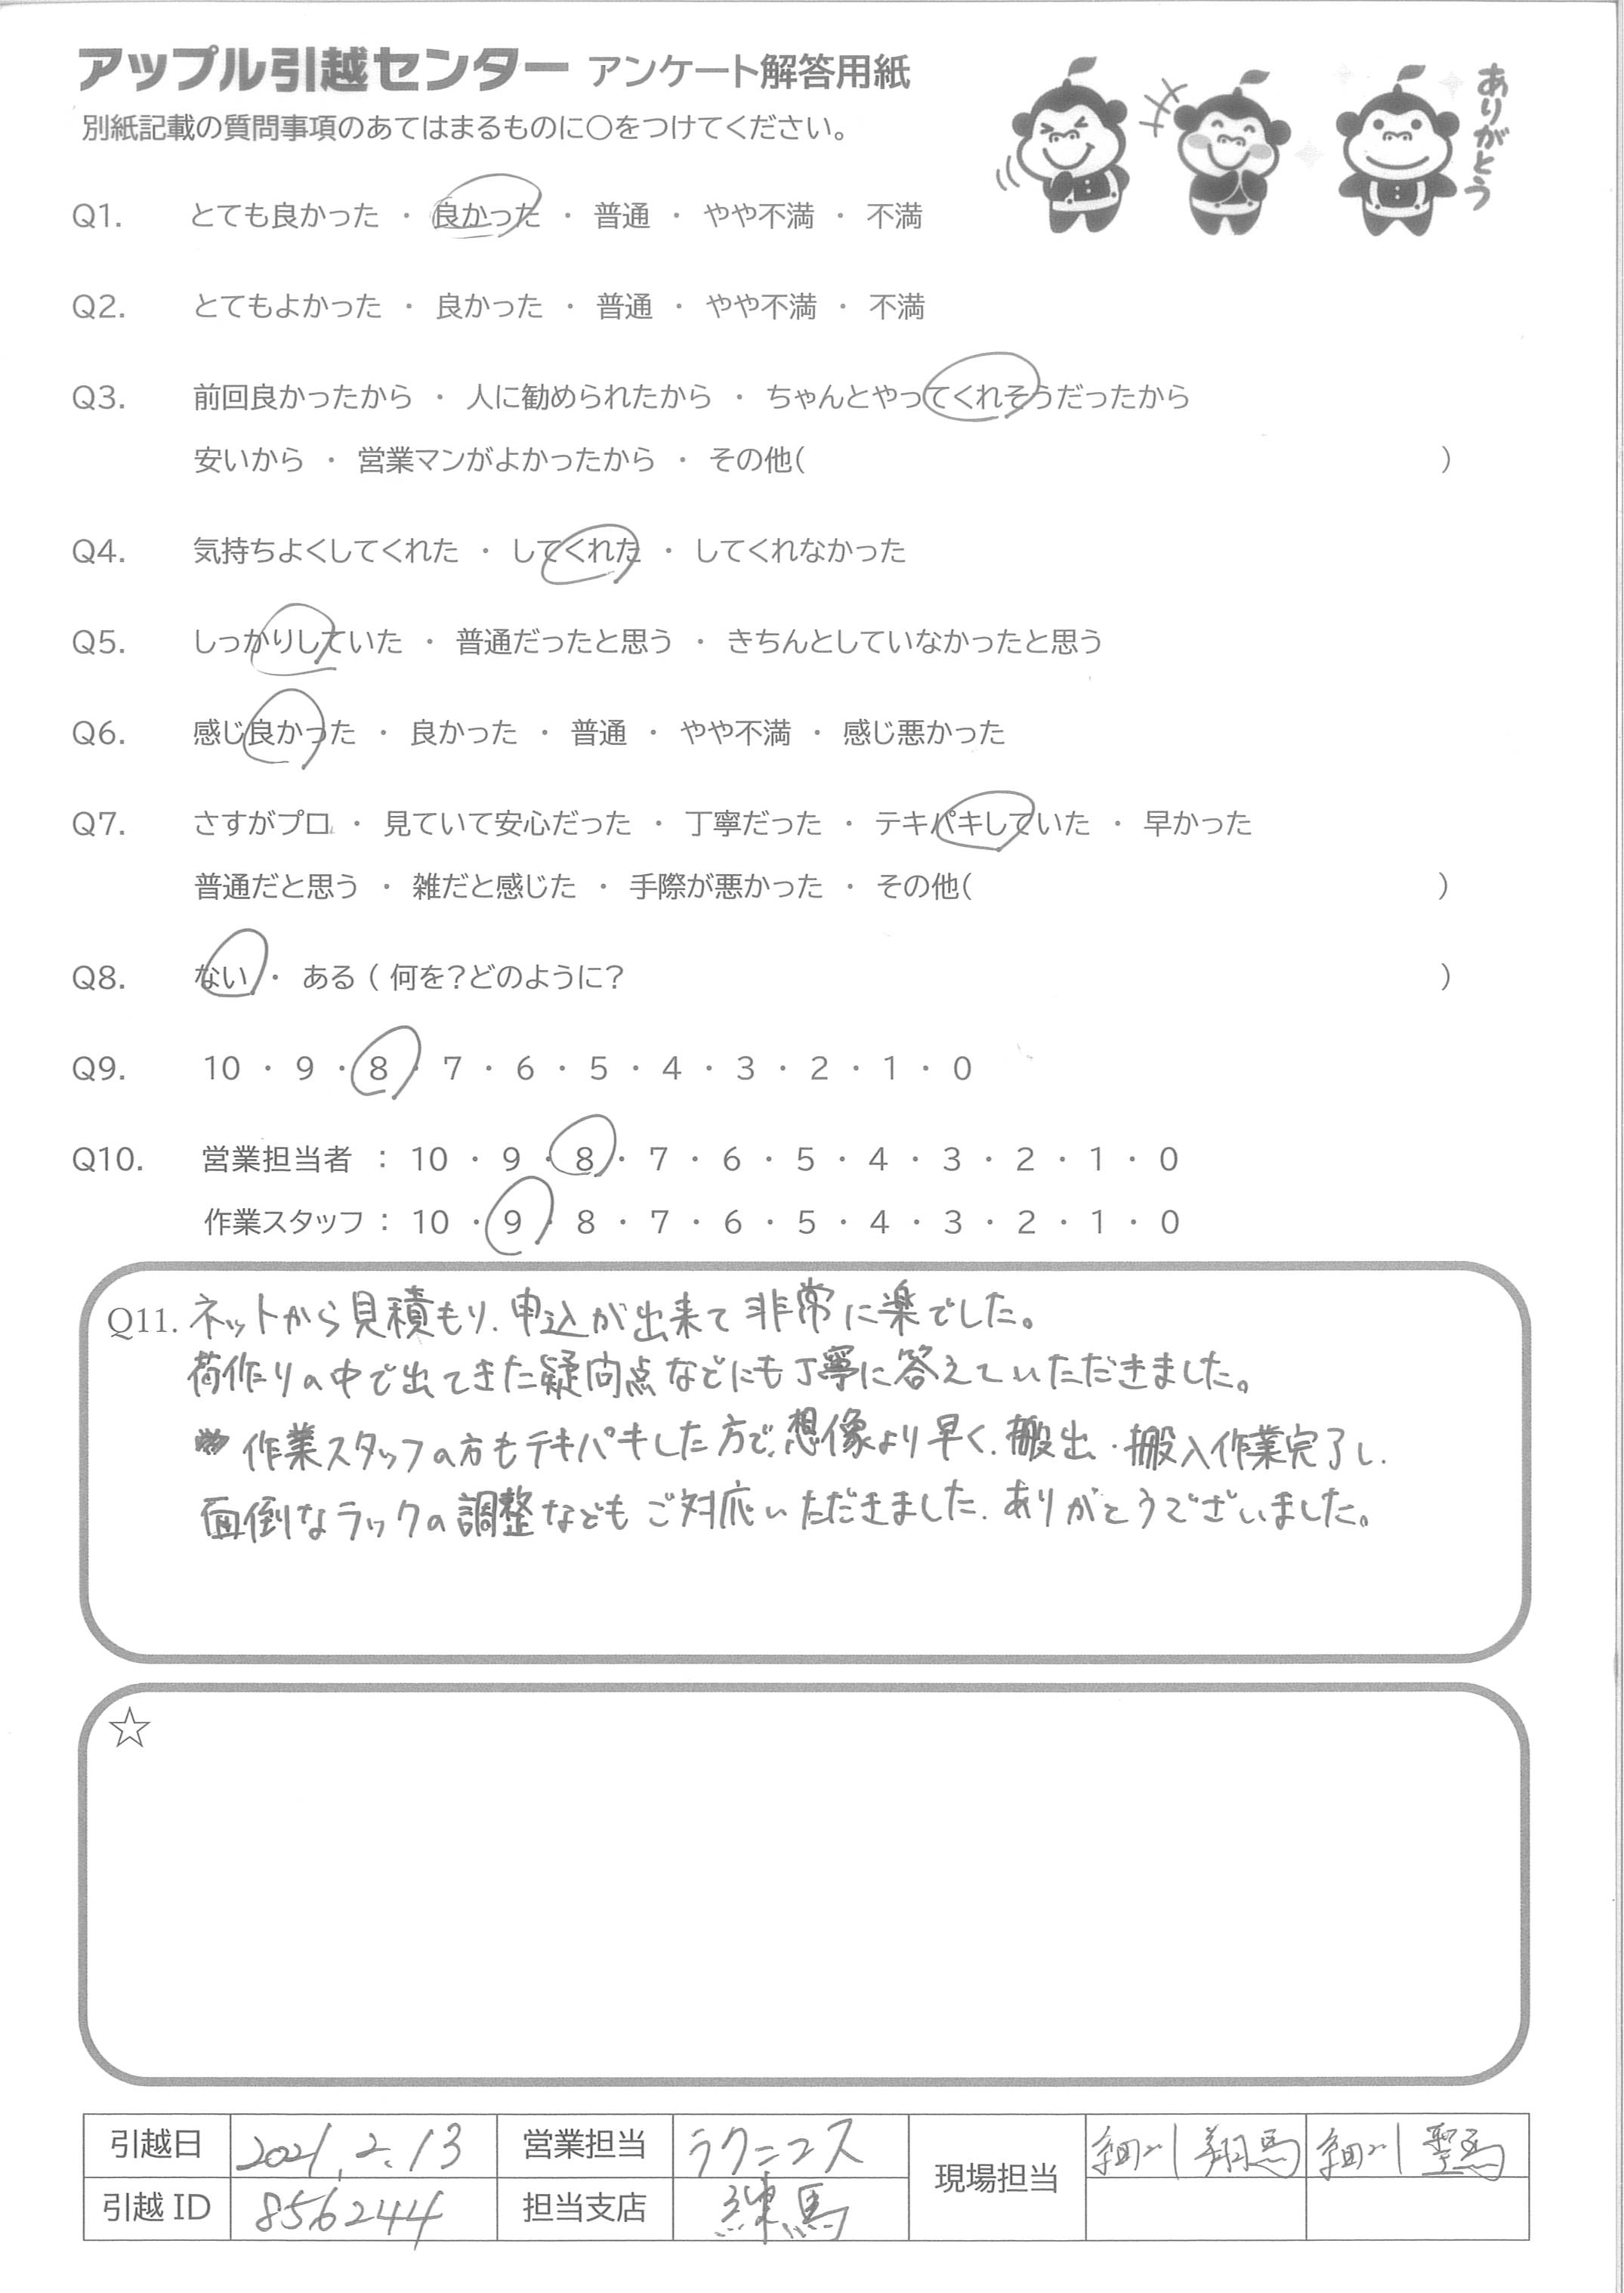 アップル引越センター アンケート解答用紙
ありがとう
別紙記載の質問事項のあてはまるものに○をつけてください。
Q1. とても良かった ・ 良かった ・ 普通 ・ やや不満 ・ 不満
Q2. とてもよかった ・ 良かった ・ 普通 ・ やや不満 ・ 不満
Q3. 前回良かったから ・ 人に勧められたから ・ ちゃんとやってくれそうだったから
安いから ・ 営業マンがよかったから ・ その他( )
Q4. 気持ちよくしてくれた ・ してくれた ・ してくれなかった
Q5. しっかりしていた ・ 普通だったと思う ・ きちんとしていなかったと思う
Q6. 感じ良かった ・ 良かった ・ 普通 ・ やや不満 ・ 感じ悪かった
Q7. さすがプロ ・ 見ていて安心だった ・ 丁寧だった ・ テキパキしていた ・ 早かった
普通だと思う ・ 雑だと感じた ・ 手際が悪かった ・ その他( )
Q8. ない ・ ある ( 何を?どのように? )
Q9. 10 ・ 9 ・ 8 ・ 7 ・ 6 ・ 5 ・ 4 ・ 3 ・ 2 ・ 1 ・ 0
Q10. 営業担当者 : 10 ・ 9 ・ 8 ・ 7 ・ 6 ・ 5 ・ 4 ・ 3 ・ 2 ・ 1 ・ 0
作業スタッフ : 10 ・ 9 ・ 8 ・ 7 ・ 6 ・ 5 ・ 4 ・ 3 ・ 2 ・ 1 ・ 0
Q11. ネットから見積もり、申込が出来て非常に楽でした。
荷作りの中で出てきた疑問点などにも丁寧に答えていただきました。
作業スタッフの方もテキパキした方で、想像より早く、搬出・搬入作業完了し、
面倒なラックの調整などもご対応いただきました。ありがとうございました。
☆
引越日 2021.2.13 営業担当 ラクニコス 現場担当 細川 翔馬 細川 聖馬
引越ID 856244 担当支店 練馬